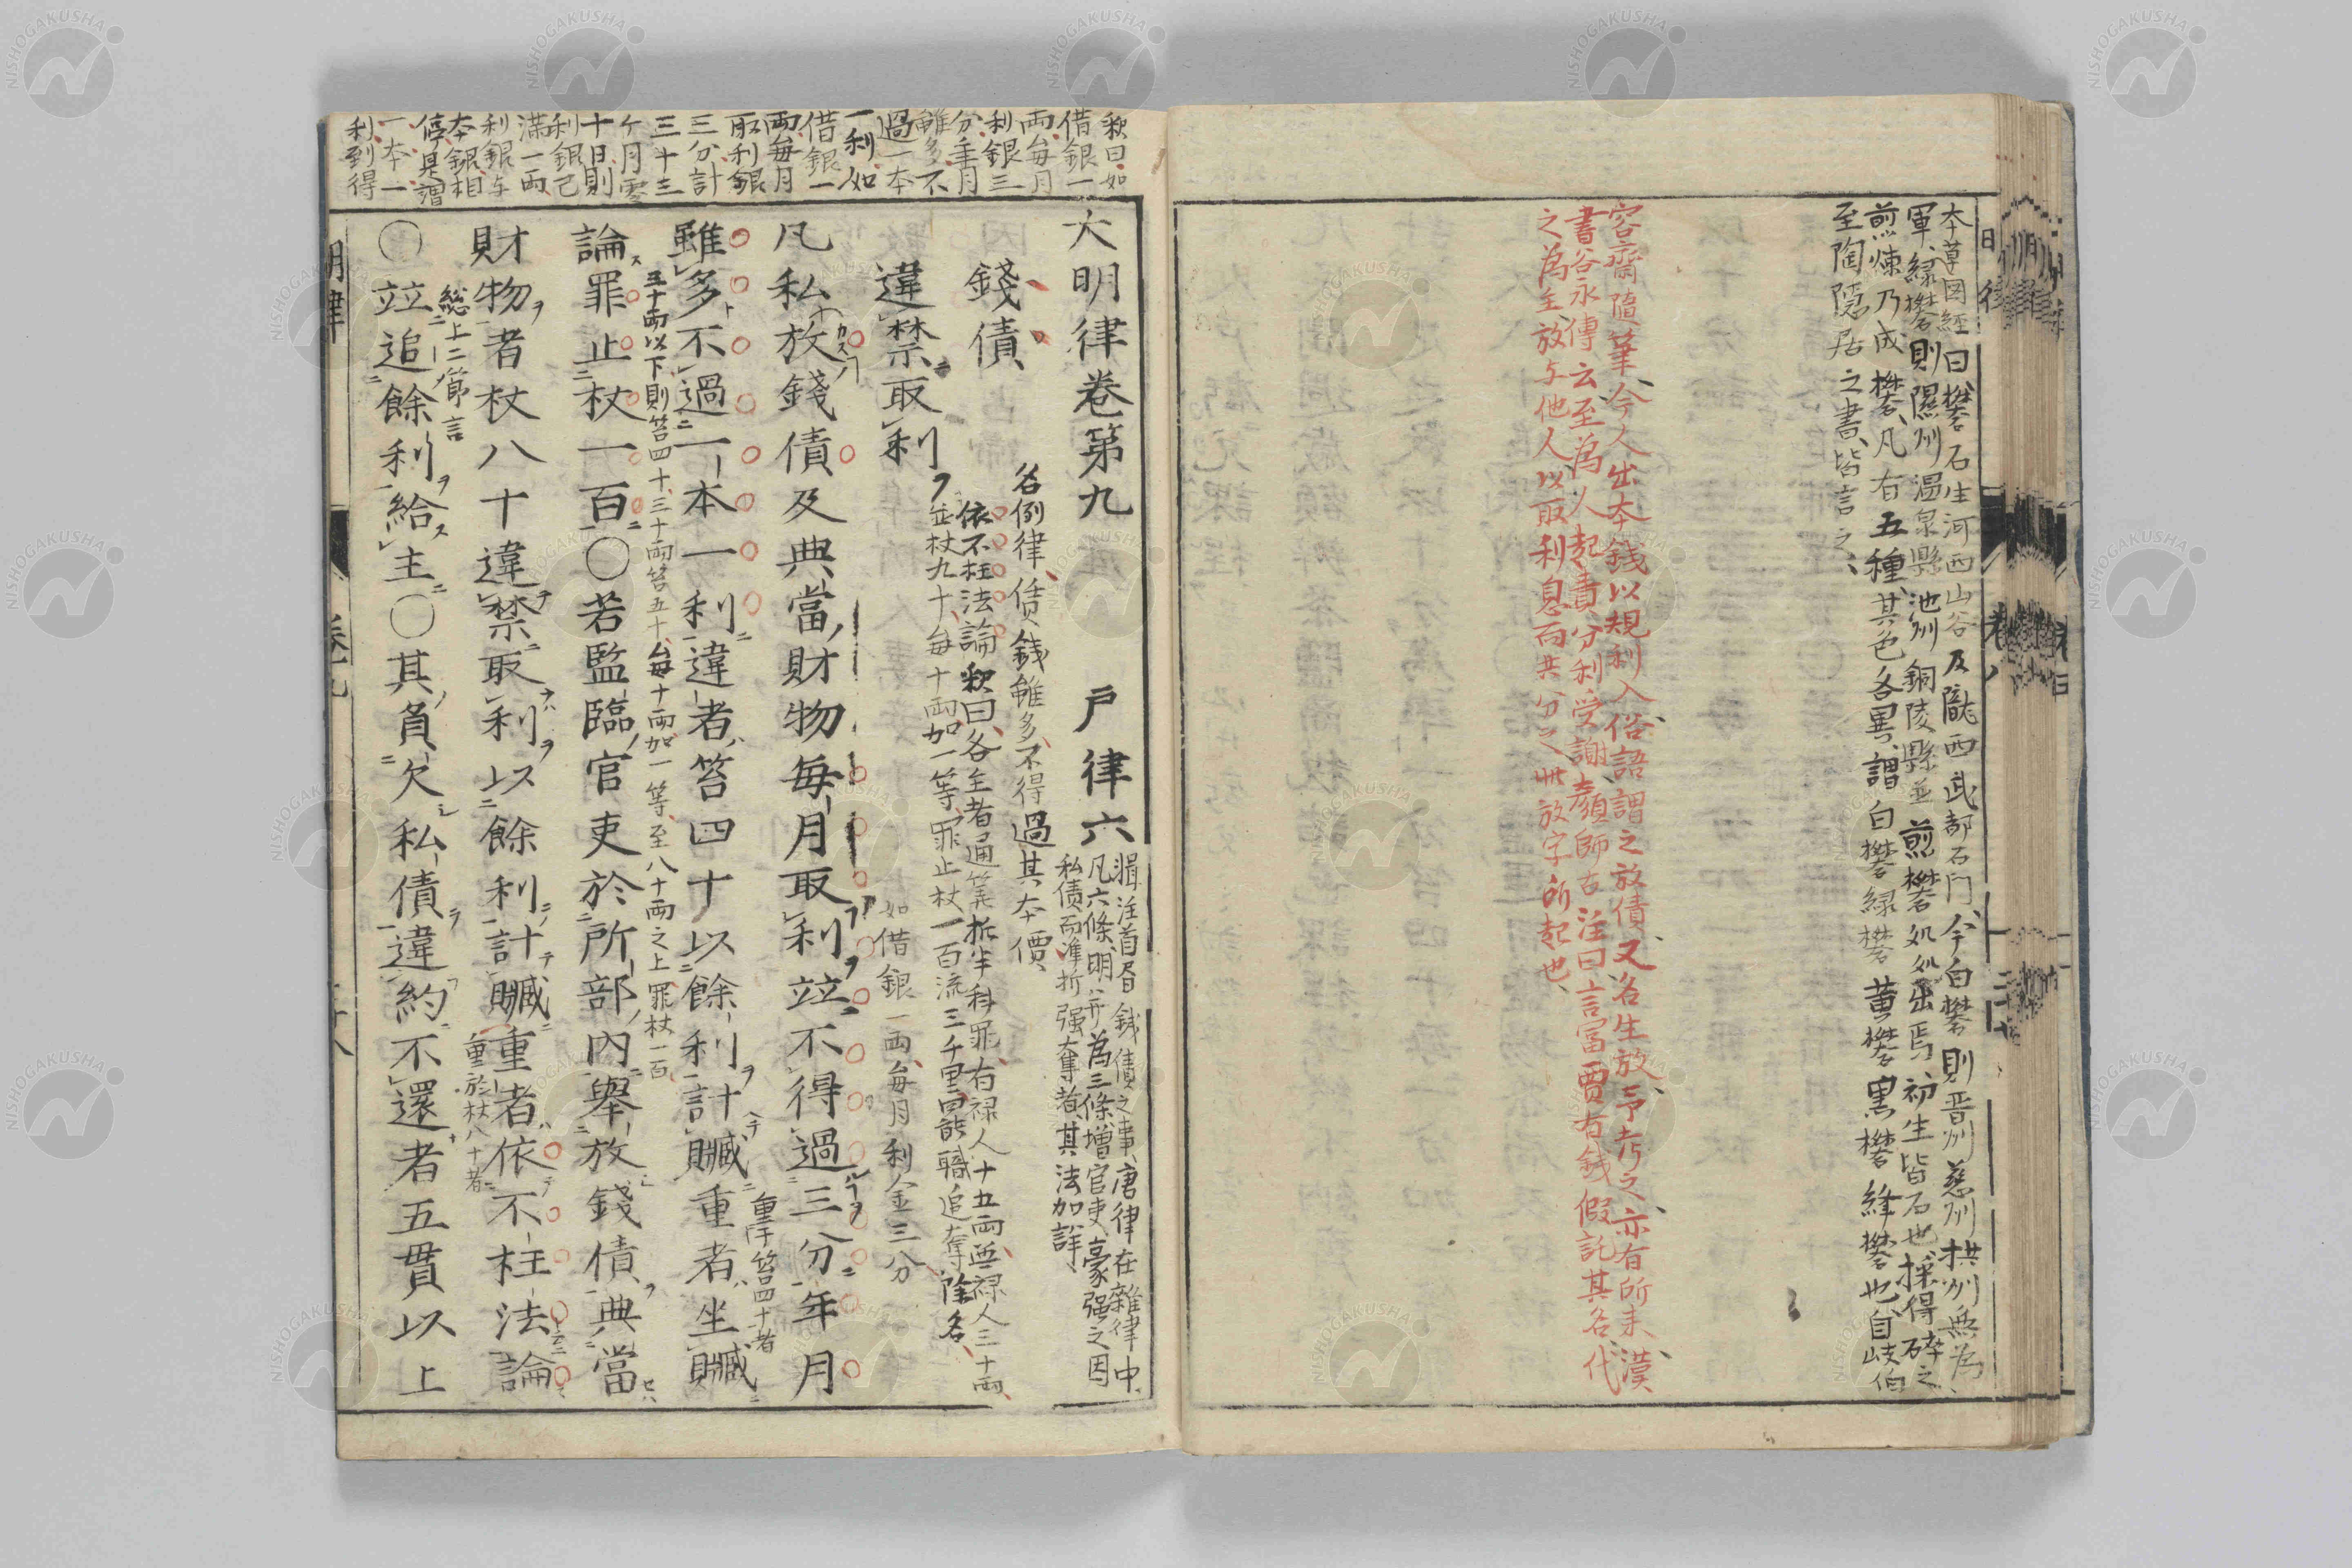 本草図経曰、礬石生河西山谷及隴西武都石門、今白礬則晋州慈州拱州無為、
軍、緑礬則隰州温泉縣、池州銅陵縣並煎礬処処出焉、初生皆石也、採得砕之
煎煉乃成礬、凡有五種、其色各異、謂白礬緑礬黄礬黒礬絳礬也、自岐伯
至陶隠居之書、皆言之、
容齋随筆、今人出本錢以規利入俗語謂之放債、又名生放、予考之、亦有所来、漢
書谷永傳云、至為人起責、分利受謝、顔師古注曰、言富賈有錢、假託其名、代
之為主、放与他人、以取利息而共分之、此放字所起也、
大明律卷第九 戸律六
輯注首眉 錢債之事、唐律在雜律中、
凡六條、明併為三條、増官吏豪强之因
私債而准折强奪者、其法加詳、
錢債
名例律、債錢雖多、不得過其本價、
違禁取利
依不枉法論 釈曰、各主者通筭折半科罪、有禄人十五両、無禄人三十両、
並杖九十、毎十両加一等、罪止杖一百流三千里、罷職追奪除名、
如借銀一両、毎月利金三分
凡私放錢債及典當財物毎月取利竝不得過三分年月
雖多不過一本一利違者笞四十以餘利計贓重者坐贓
重于笞四十者
五十両以下則笞四十、三十両笞五十、毎十両加一等、至八十両之上罪杖一百
論罪止杖一百〇若監臨官吏於所部内舉放錢債典當
財物者杖八十違禁取利以餘利計贓重者依不枉法論
重於杖八十者
総上二節言
〇竝追餘利給主〇其負欠私債違約不還者五貫以上
釈曰、如
借銀一
両、毎月
利銀三
分、年月
雖多、不
過一本
一利、如
借銀一
両、毎月
取利銀
三分、計
三十三
ケ月零
十日、則
利銀已
満一両、
利銀与
本銀相
停、是謂
一本一
利、到得